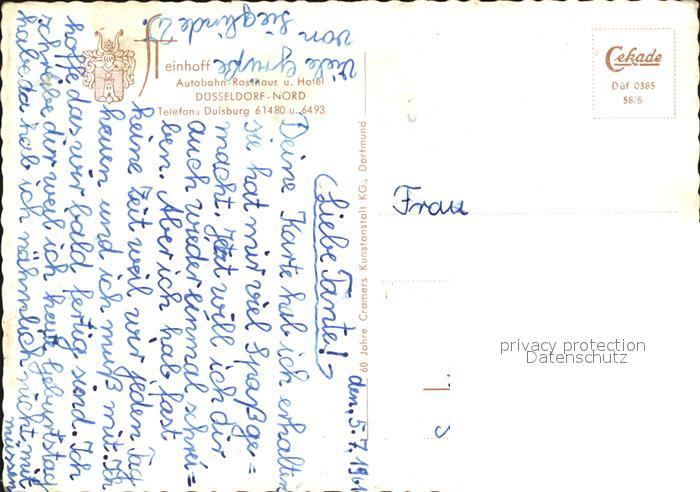 einhoff
Autobahn-Rasthaus u. Hotel
DÜSSELDORF-NORD
Telefon: Duisburg 61480 u. 6493
Cekade
Düf 0385
58/5
60 Jahre Cramers Kunstanstalt KG., Dortmund
Frau
privacy protection
Datenschutz
den, 5.7.
(Liebe Tante!)
Deine Karte hab ich erhalten
sie hat mir viel Spaß ge=
macht. Jetzt will ich dir
auch wieder einmal schrei=
ben. Aber ich hab fast
keine Zeit weil wir jeden Tag
heuen und ich muß mit. Ich
hoffe das wir bald fertig sind. Ich
schreibe dir weil ich heut Geburtstag
habe da hab ich nähmlich nicht mit
müssen
Viele Grüße
von Sieglinde